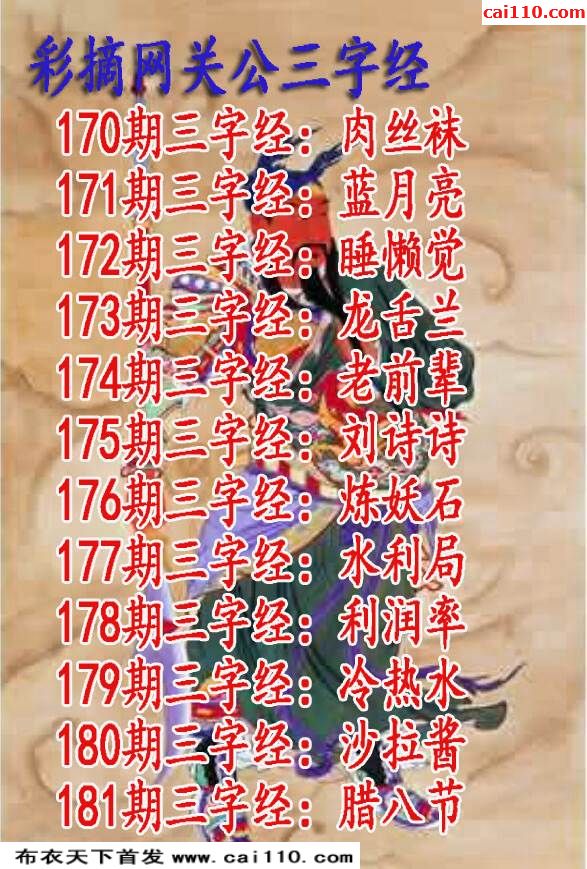 cai110.com
彩摘网关公三字经
170期三字经：肉丝袜
171期三字经：蓝月亮
172期三字经：睡懒觉
173期三字经：龙舌兰
174期三字经：老前辈
175期三字经：刘诗诗
176期三字经：炼妖石
177期三字经：水利局
178期三字经：利润率
179期三字经：冷热水
180期三字经：沙拉酱
181期三字经：腊八节
布衣天下首发 www.cai110.com